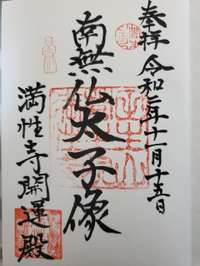 奉拝 令和二年十一月十五日
南無仏太子像
満性寺開運殿